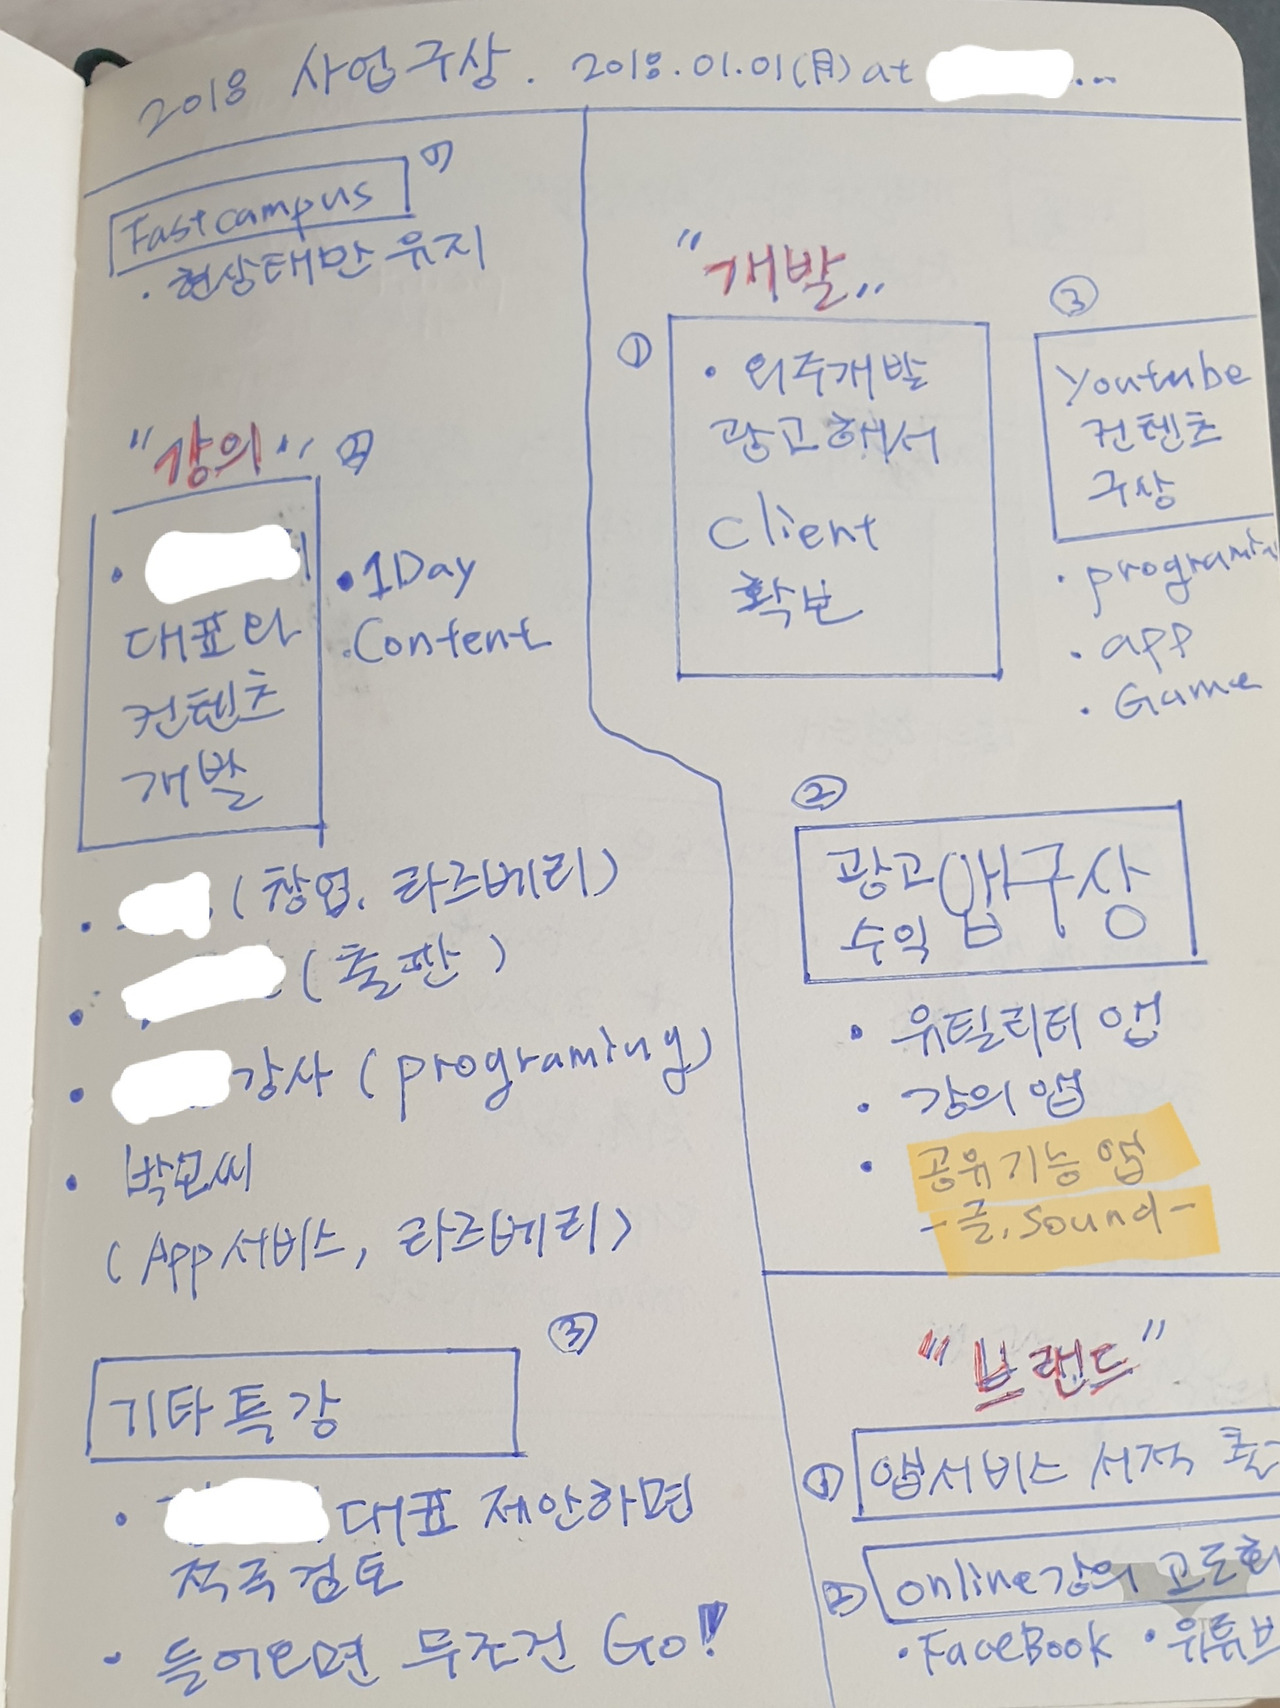 2018 사업구상. 2018.01.01(月) at ...
Fastcampus
· 현상태만 유지
"강의" ②
·
대표와
컨텐츠
개발
· 1Day
· Content
· (창업, 라즈베리)
· (출판)
· 강사 (programing)
· 박모씨
(App서비스, 라즈베리)
③
기타특강
· 대표 제안하면
적극검토
· 들어오면 무조건 Go!
"개발"
①
· 외주개발
광고해서
Client
확보
③
Youtube
컨텐츠
구상
·
· app
· Game
②
광고 앱구상
수익
· 유틸리티 앱
· 강의 앱
· 공유기능 앱
- 글, Sound -
"브랜드"
① 앱서비스 서적
② online강의 고도화
· FaceBook · 유튜브